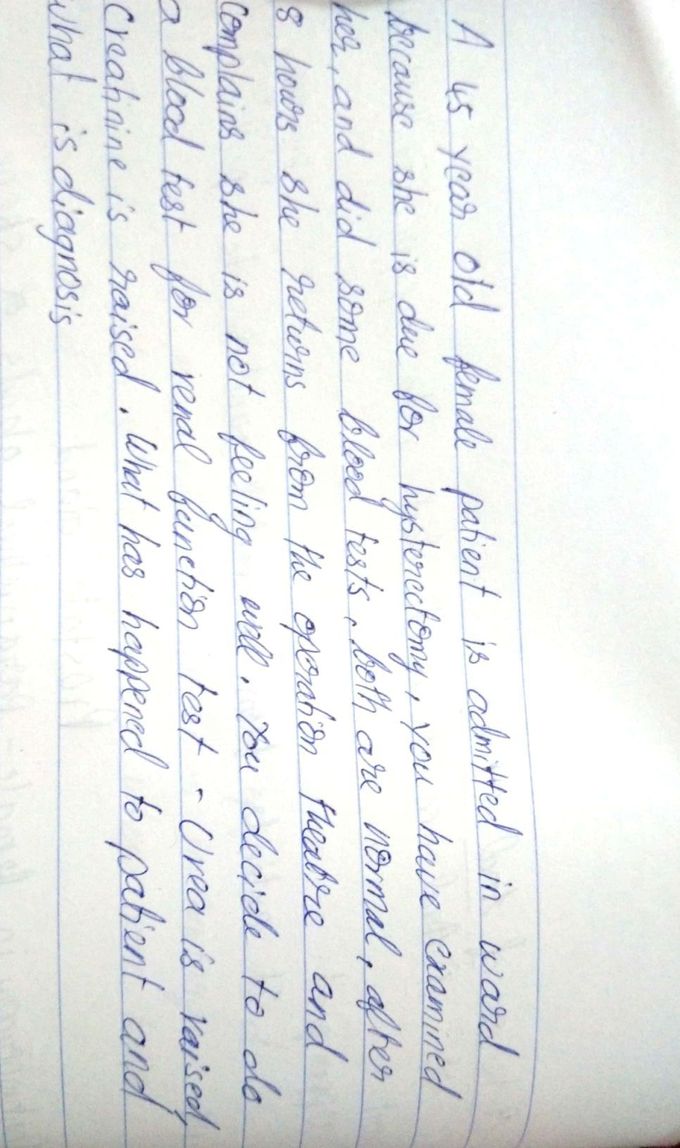 A 45 year old female patient is admitted in ward
because she is due for hysterectomy, you have examined
her, and did some blood tests, both are normal, after
8 hours she returns from the operation theatre and
complains she is not feeling well. You decide to do
a blood test for renal function test - Urea is raised,
creatinine is raised. What has happened to patient and
what is diagnosis